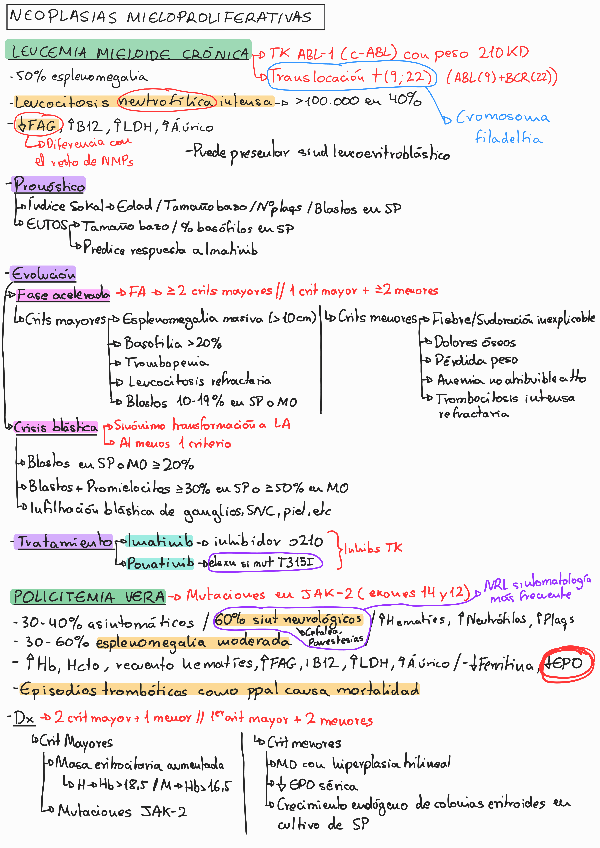 NEOPLASIAS MIELOPROLIFERATIVAS
LEUCEMIA MIELOIDE CRÓNICA → TK ABL-1 (c-ABL) con peso 210KD
→ Translocación t(9;22) (ABL(9)+BCR(22))
Cromosoma filadelfia
- 50% esplenomegalia
- Leucocitosis neutrofílica intensa → >100.000 en 40%
- ↓FAG, ↑B12, ↑LDH, ↑Áúrico
→ Diferencia con el resto de NMPs
- Puede presentar sind leucoeritroblástico
- Pronóstico
→ Índice Sokal → Edad / Tamaño bazo / Nº plaqs / Blastos en SP
→ EUTOS → Tamaño bazo / % basófilos en SP
→ Predice respuesta a Imatinib
- Evolución
→ Fase acelerada → FA → ≥2 crits mayores // 1 crit mayor + ≥2 menores
→ Crits mayores → Esplenomegalia masiva (>10cm)
→ Basofilia >20%
→ Trombopenia
→ Leucocitosis refractaria
→ Blastos 10-19% en SP o MO
→ Crits menores → Fiebre/Sudoración inexplicable
→ Dolores óseos
→ Pérdida peso
→ Anemia no atribuible a tto
→ Trombocitosis intensa refractaria
→ Crisis blástica → Sinónimo transformación a LA
→ Al menos 1 criterio
→ Blastos en SP o MO ≥20%
→ Blastos + Promielocitos ≥30% en SP o ≥50% en MO
→ Infiltración blástica de ganglios, SNC, piel, etc
- Tratamiento → Imatinib → inhibidor p210
→ Ponatinib → elecn si mut T315I
Inhibs TK
POLICITEMIA VERA → Mutaciones en JAK-2 (exones 14 y 12)
→ NRL sintomatología más frecuente
- 30-40% asintomáticos / 60% sint neurológicos / ↑Hematíes, ↑Neutrófilos, ↑Plaqs
→ Cefalea, Parestesias
- 30-60% esplenomegalia moderada
- ↑Hb, Hcto, recuento hematíes, ↑FAG, ↑B12, ↑LDH, ↑Áúrico / - ↓Ferritina, ↓EPO
- Episodios trombóticos como ppal causa mortalidad
- Dx → 2 crit mayor + 1 menor // 1er crit mayor + 2 menores
→ Crit Mayores
→ Masa eritrocitaria aumentada
→ H → Hb>18,5 / M → Hb>16,5
→ Mutaciones JAK-2
→ Crit menores
→ MO con hiperplasia trilineal
→ ↓ EPO sérica
→ Crecimiento endógeno de colonias eritroides en cultivo de SP